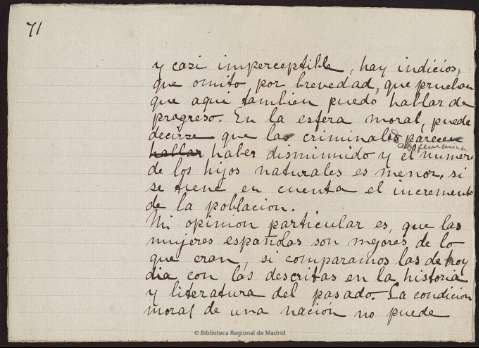 71
y casi imperceptible, hay indicios,
que omito por brevedad, que prueban
que aqui tambien puedo hablar de
progreso. En la esfera moral, puede
decirse que las criminales parecen
femenina
hallar haber disminuido y el numero
de los hijos naturales es menor, si
se tiene en cuenta el incremento
de la poblacion.
Mi opinion particular es, que las
mujeres españolas son mejores de lo
que eran, si comparamos las de hoy
dia con las descritas en la historia
y literatura del pasado. La condicion
moral de una nacion no puede
© Biblioteca Regional de Madrid